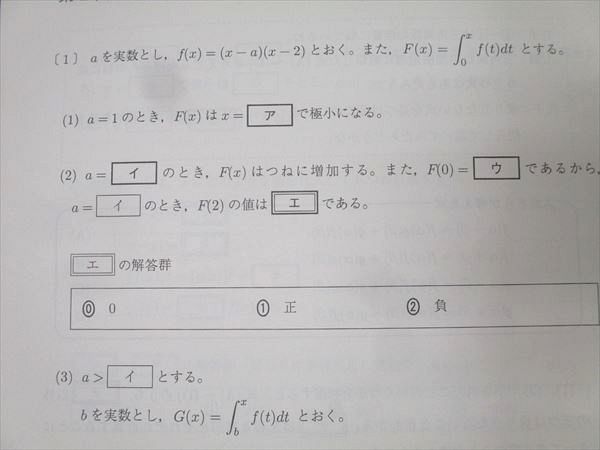 〔1〕 aを実数とし，f(x)=(x−a)(x−2)とおく。また，F(x)=∫₀ˣ f(t)dt とする。
(1) a=1のとき，F(x)はx= ア で極小になる。
(2) a= イ のとき，F(x)はつねに増加する。また，F(0)= ウ であるから，
a= イ のとき，F(2)の値は エ である。
エ の解答群
⓪ 0 ① 正 ② 負
(3) a> イ とする。
bを実数とし，G(x)=∫_b^x f(t)dt とおく。